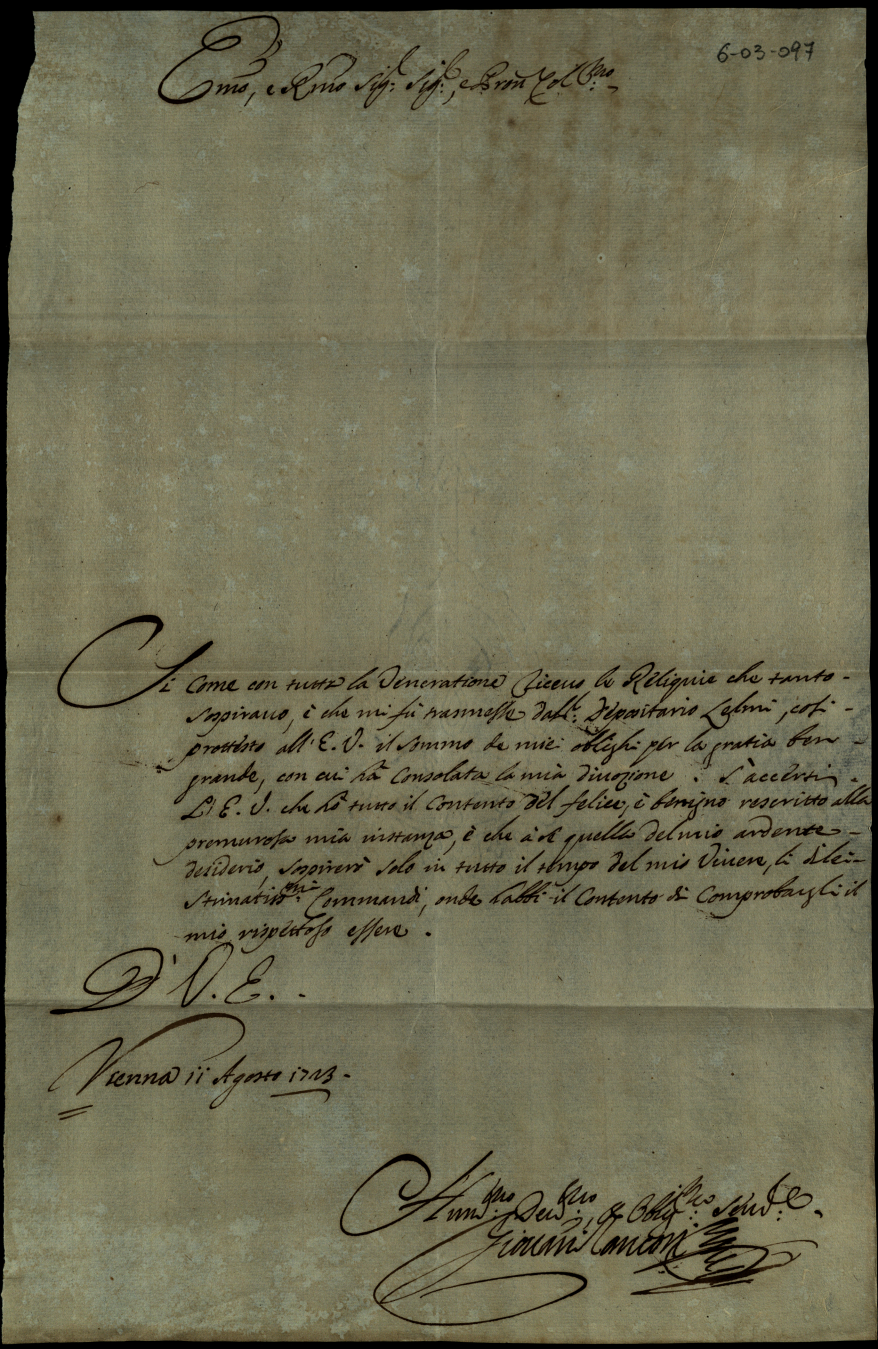 6-03-097
Emo, e Rmo Sig.r Sig.r, e Pron Col.mo
Si come con tutta la Veneratione riceuo le Reliquie che tanto
sospirauo, è che mi fù trasmesse dall Depositario Lelmi, così
prottesto all'E. V. il sommo de miei oblighi per la gratia ben
grande, con cui hà consolata la mia diuozione. S'accerti
L'E. V. che hò tutto il contento del felice, è benigno rescritto alla
premurosa mia instanza, è che à quella del mio ardente
desiderio, sospirerò solo in tutto il tempo del mio Viuere, li di lei
stimatiss.mi Commandi, onde habbi il Contento di Comprobargli il
mio rispettoso essere.
D' V. E.
Vienna 11 Agosto 1723
Hum.mo Deu.mo, & Oblig.mo Seru.e
Giouani